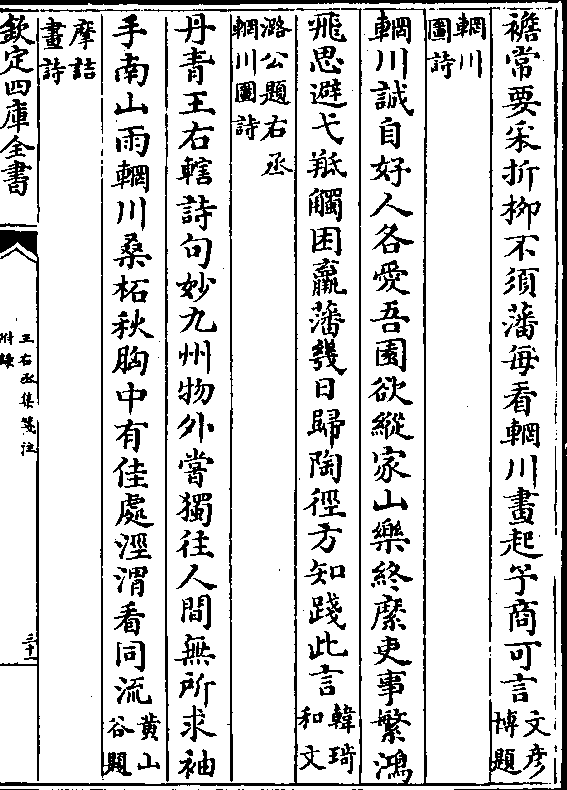 襜常要采折栁不須藩每看輞川畫起予商可言文彦博題
輞川圖詩
輞川誠自好人各愛吾園欲縱家山樂終縻吏事繁鴻
飛思避弋羝觸困羸藩幾日歸陶徑方知踐此言韓琦和文
潞公題右丞輞川圖詩
丹青王右轄詩句妙九州物外嘗獨往人間無所求袖
手南山雨輞川桑柘秋胸中有佳處涇渭看同流黄山谷題
摩詰畫詩
欽定四庫全書
王右丞集箋注
附録
三十二